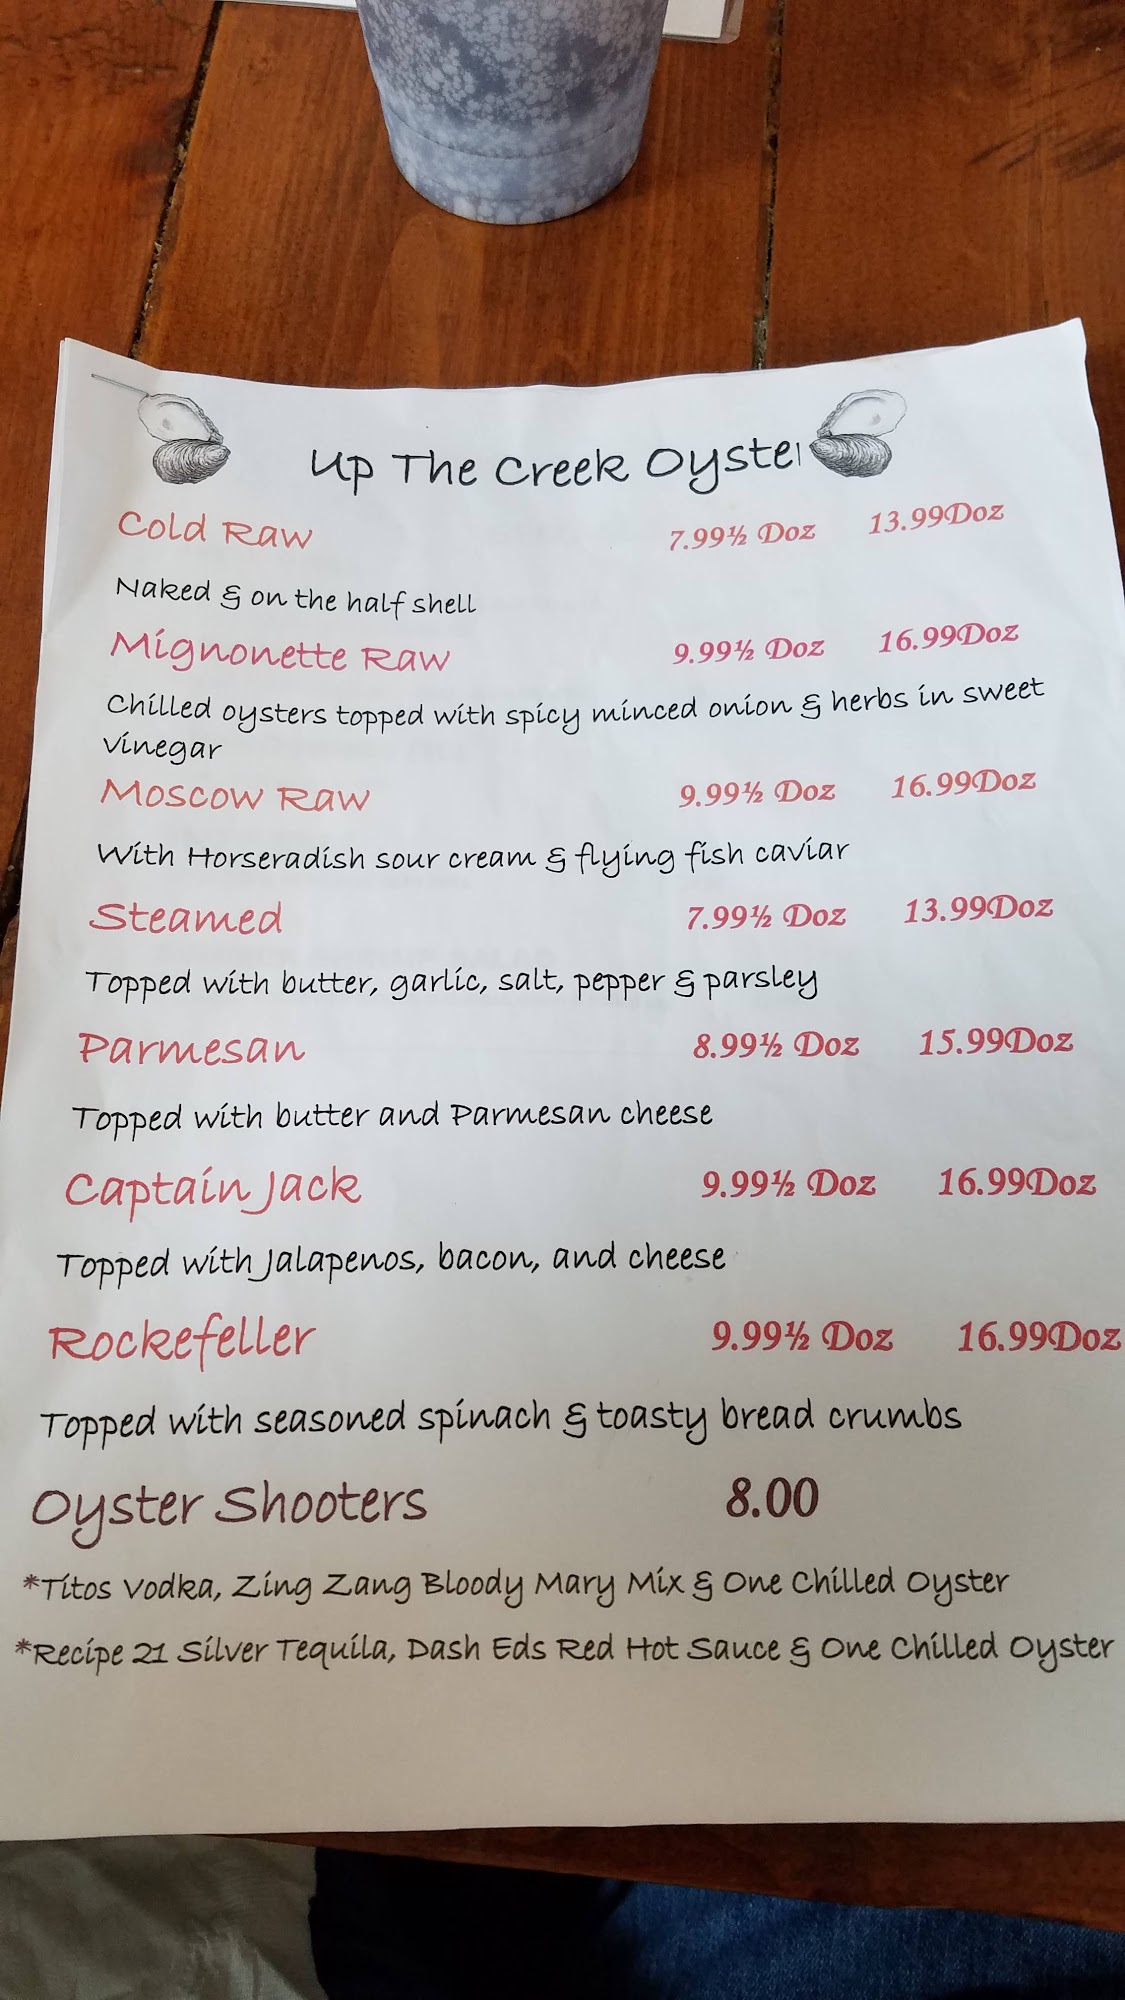 Up The Creek Oyster
Cold Raw 7.99½ Doz 13.99Doz
Naked & on the half shell
Mignonette Raw 9.99½ Doz 16.99Doz
Chilled oysters topped with spicy minced onion & herbs in sweet
vinegar
Moscow Raw 9.99½ Doz 16.99Doz
With Horseradish sour cream & flying fish caviar
Steamed 7.99½ Doz 13.99Doz
Topped with butter, garlic, salt, pepper & parsley
Parmesan 8.99½ Doz 15.99Doz
Topped with butter and Parmesan cheese
Captain Jack 9.99½ Doz 16.99Doz
Topped with Jalapenos, bacon, and cheese
Rockefeller 9.99½ Doz 16.99Doz
Topped with seasoned spinach & toasty bread crumbs
Oyster Shooters 8.00
*Titos Vodka, Zing Zang Bloody Mary Mix & One Chilled Oyster
*Recipe 21 Silver Tequila, Dash Eds Red Hot Sauce & One Chilled Oyster